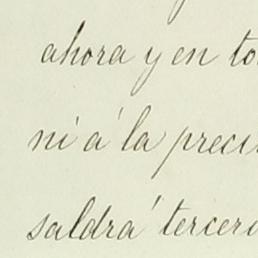 ahora y en to
ni á la preci
saldrá tercer